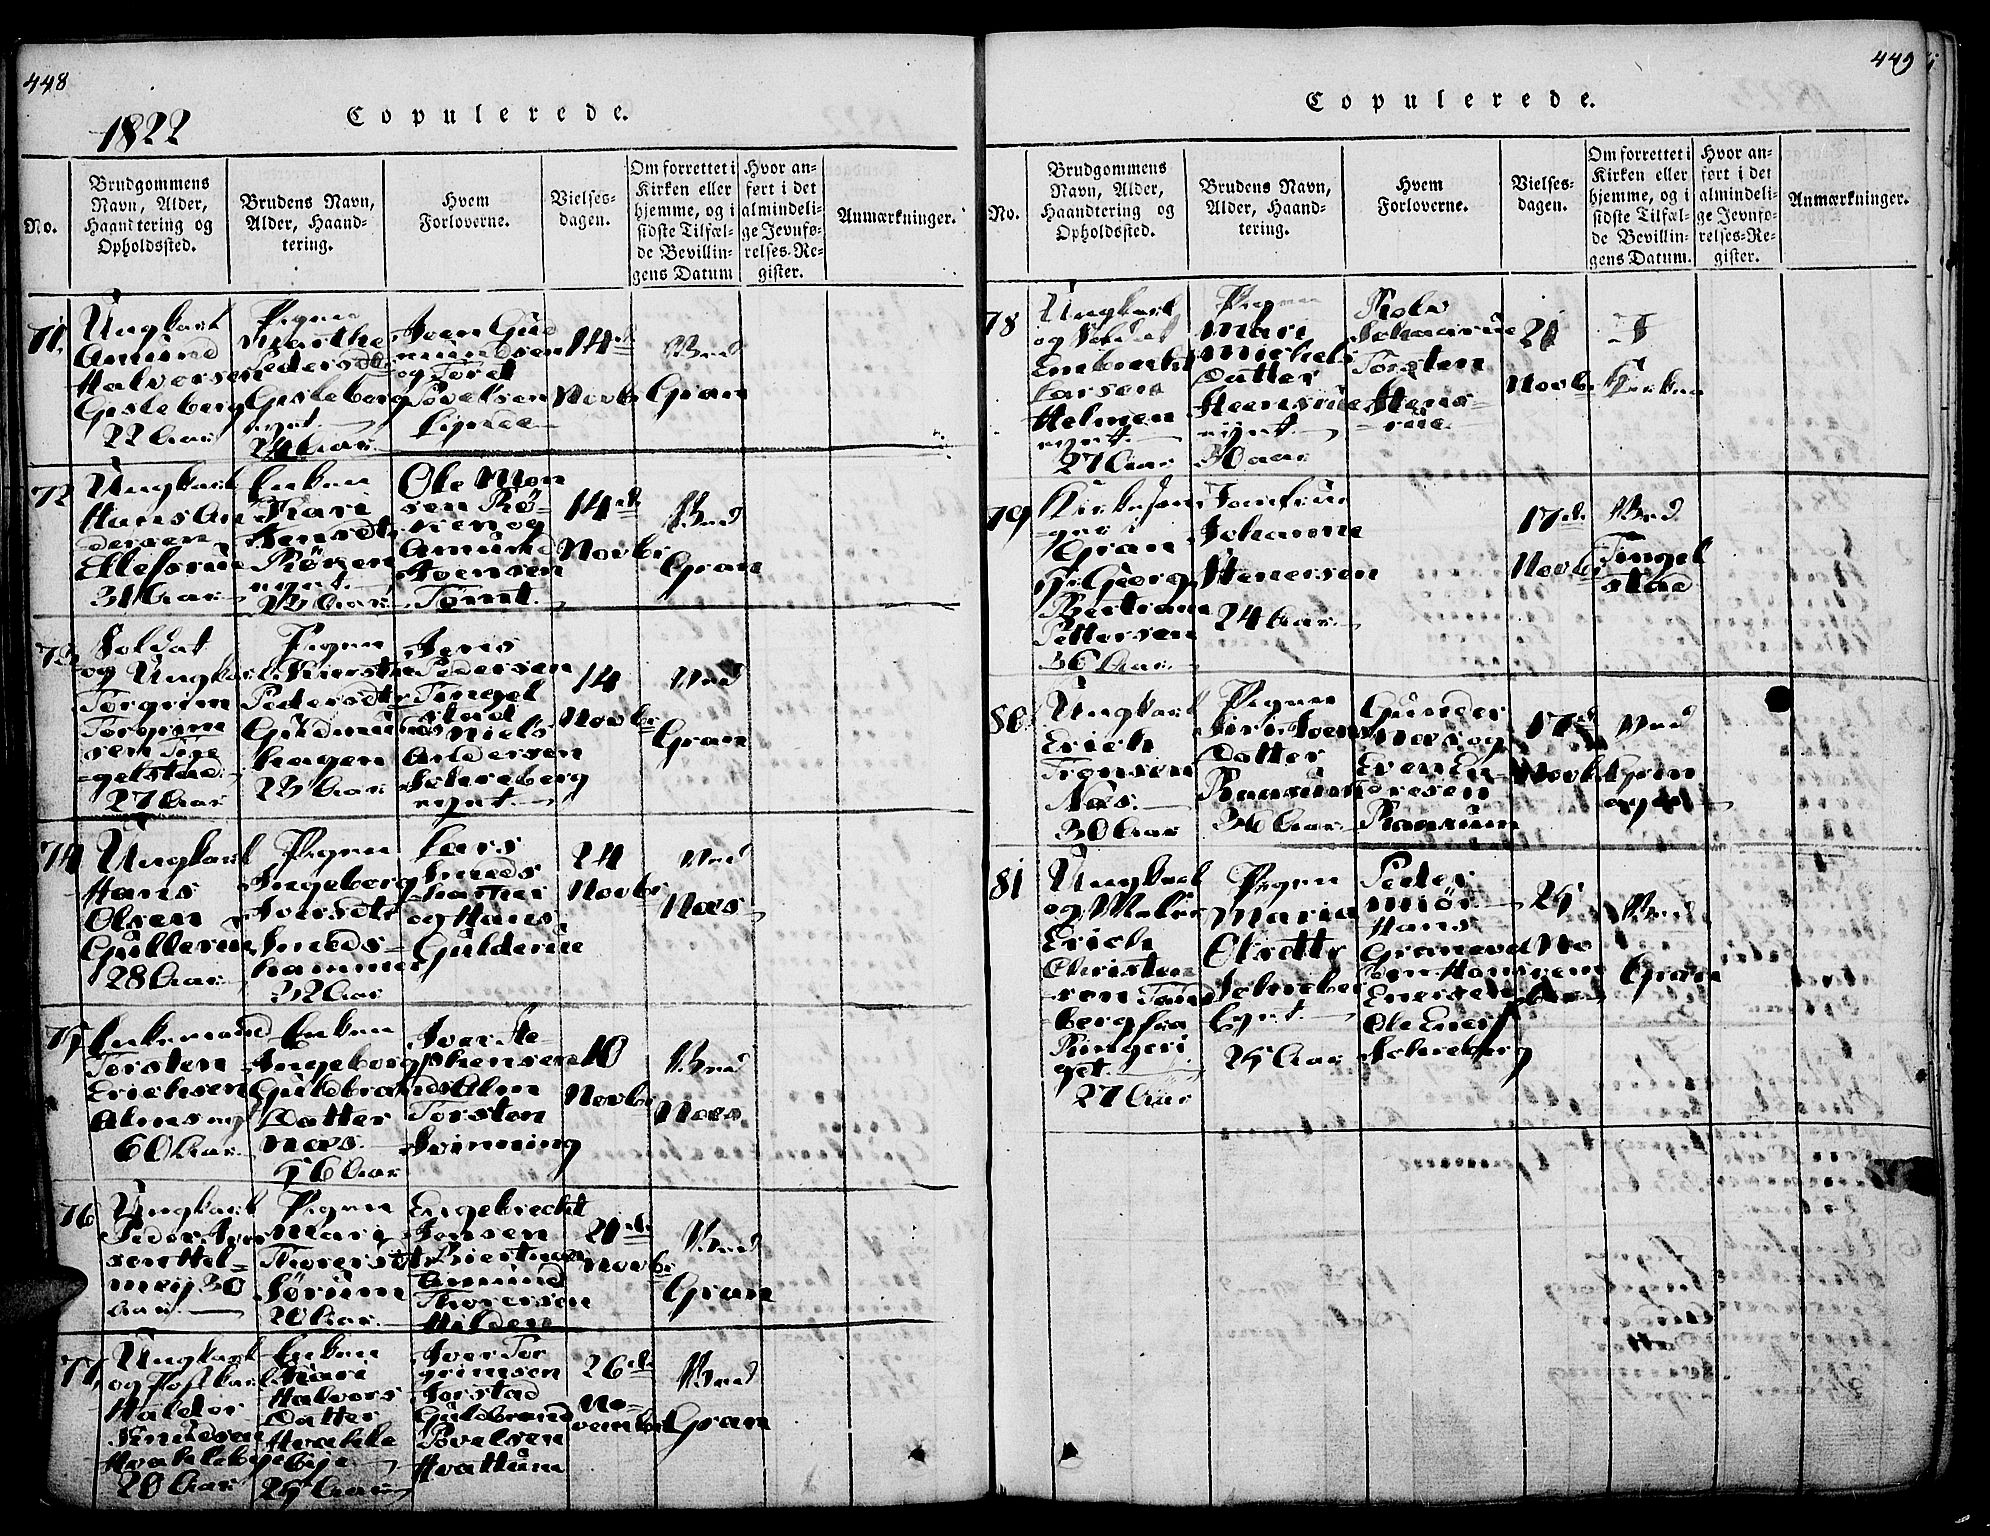 448
1822
Copulerede.
No.
Brudgommens Navn, Alder, Haandtering og Opholdssted.
Brudens Navn, Alder, Haandtering.
Hvem Forloverne.
Vielsesdagen.
Om forrettet i Kirken eller hjemme, og i sidste Tilfælde Bevillingens Datum
Hvor anført i det almindelige Jevnførelses-Register.
Anmærkninger.
71.
Ungkarl
Amund
Halvorsen
Gisleberg
22 Aar
Pigen
Marthe
Pedersdtr
Gisleberg
24 Aar
Iven Gu
mundsen
og Toret
Povelsen
Lynde
14de
Novbr
Ved
Gran
72
Ungkarl
Hans An
dersen
Ellefsrue
31 Aar
Enken
Kari
Jensdtr
Røken
Ole Mon
sen Rø-
ken og
Amund
Ivensen
Tomt.
14de
Novbr
Ved
Gran
73
Soldat
og Ungkarl
Torgrim
Torgrim
sen Tige
gelstad
27 Aar
Pigen
Kiersten
Pedersdtr
Guldmunds
hagen
23 Aar
Jens
Pedersen
Tingel
stad
Niels
Andersen
Schreberg
14
Novbr
Ved
Gran
74
Ungkarl
Hans
Olsen
Gullerue
28 Aar
Pigen
Ingeborg
Iversdtr
Smeds-
hammer
32 Aar
Lars
Smeds
hamer
og Hans
Gulderue
24
Novbr
Ved
Næs
75
Enkemand
Torsten
Erichsen
60 Aar
Enken
Ingeborg
Guldbrands
Datter
Næs
56 Aar
Iver Ste-
phensen
Alm
Torsten
Svinning
10
Novbr
Ved
Næs
76
Ungkarl
Peder Iver
sen Hel-
meij 30
Aar
Pigen
Mari
Thoresdtr
Sørum
20 Aar
Engebrecht
Jensen
Amund
Thoresen
Helden
21de
Novbr
Ved
Gran
77.
Ungkarl
og Postkarl
Haldor
Knudsen
Hvaklebye
20 Aar
Enken
Kari
Halvors
Datter
Hvakle
bije
25 Aar
Iver Tor
grimsen
Jorstad
Guldbrand
Povelsen
Hvattum
26de
No-
vember
Ved
Gran
449
Copulerede.
No.
Brudgommens Navn, Alder, Haandtering og Opholdssted.
Brudens Navn, Alder, Haandtering.
Hvem Forloverne.
Vielsesdagen.
Om forrettet i Kirken eller hjemme, og i sidste Tilfælde Bevillingens Datum.
Hvor anført i det almindelige Jevnførelses-Register.
Anmærkninger.
78
Ungkarl
og Soldat
Embrecht
Larsen
Helmen
27 Aar
Pigen
Mari
Michels
Datter
Heensrue
30 aar
Torsten
Hens-
rue
Novbr
I
Kirken
79
Gran
Hr. Georg
Bertram
Pettersen
36 Aar
Jomfrue
Johanne
Stenersen
24 Aar
17de
Novbr
Ved
Tingel
stad
80.
Ungkarl
Erich
Tronsen
Næs
30 Aar
Pigen
Siri Ivers
Datter
Raasum
36 Aar
Gunder
Næs og
Even En-
dresen
Raasum
17de
Novbr
Ved
Gran
81
Ungkarl
og Maler
Erich
Christen
sen Tans
berg fra
Ringeri
get
27 Aar
Pigen
Maria
Olsdttr
Schreber
25 Aar
Peder
Miør
Hans
Granevol
Enersen
Ole Eners
Schreberg
25
No
Ved
Gran